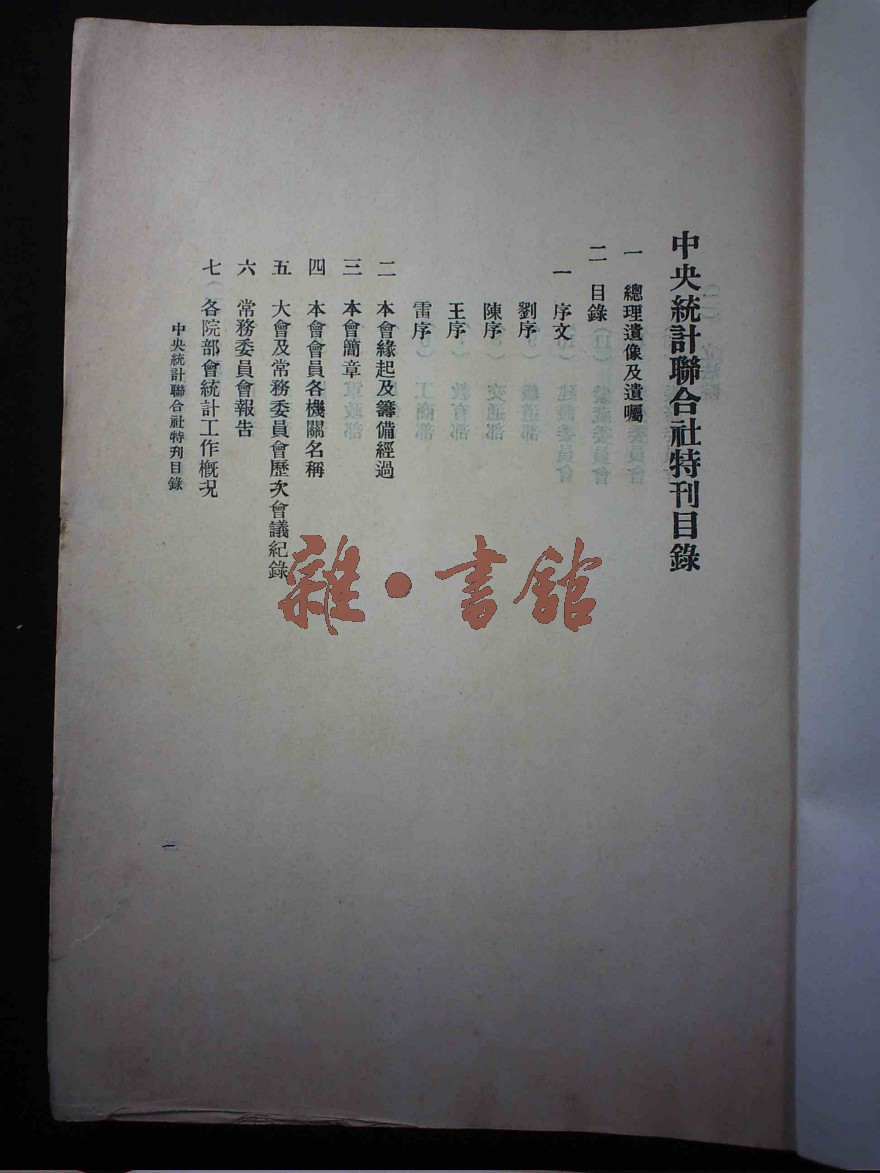 中央統計聯合社特刊目錄
一 總理遺像及遺囑
二 目錄
一 序文
劉序
陳序
王序
雷序
二 本會緣起及籌備經過
三 本會簡章
四 本會會員各機關名稱
五 大會及常務委員會歷次會議紀錄
六 常務委員會報告
七 各院部會統計工作概況
中央統計聯合社特刊目錄
一
雜·書館